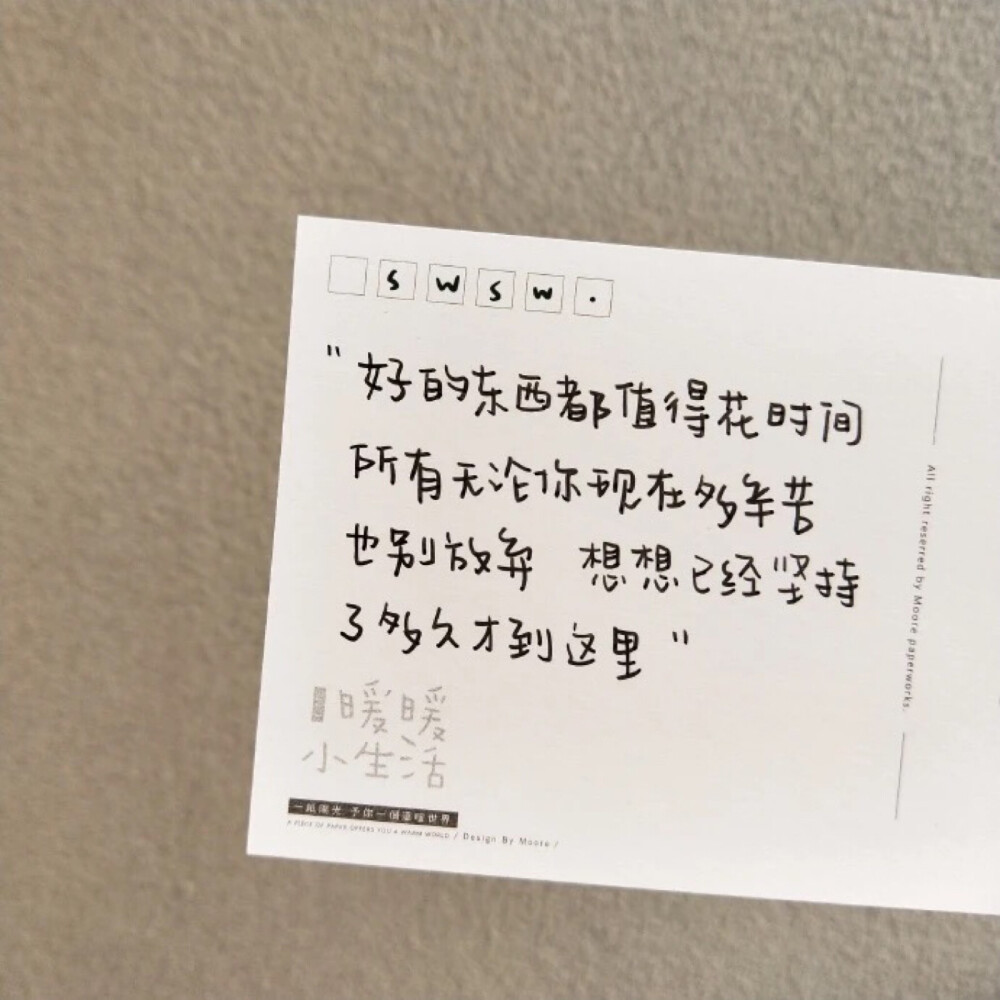 s w s w .
"好的东西都值得花时间
所有无论你现在多辛苦
也别放弃 想想已经坚持
了多久才到这里"
暖暖
小生活
一紙陽光 予你一個溫暖世界
A PIECE OF PAPER OFFERS YOU A WARM WORLD / Design By Moore /
All right reserred by Moore paperworks.